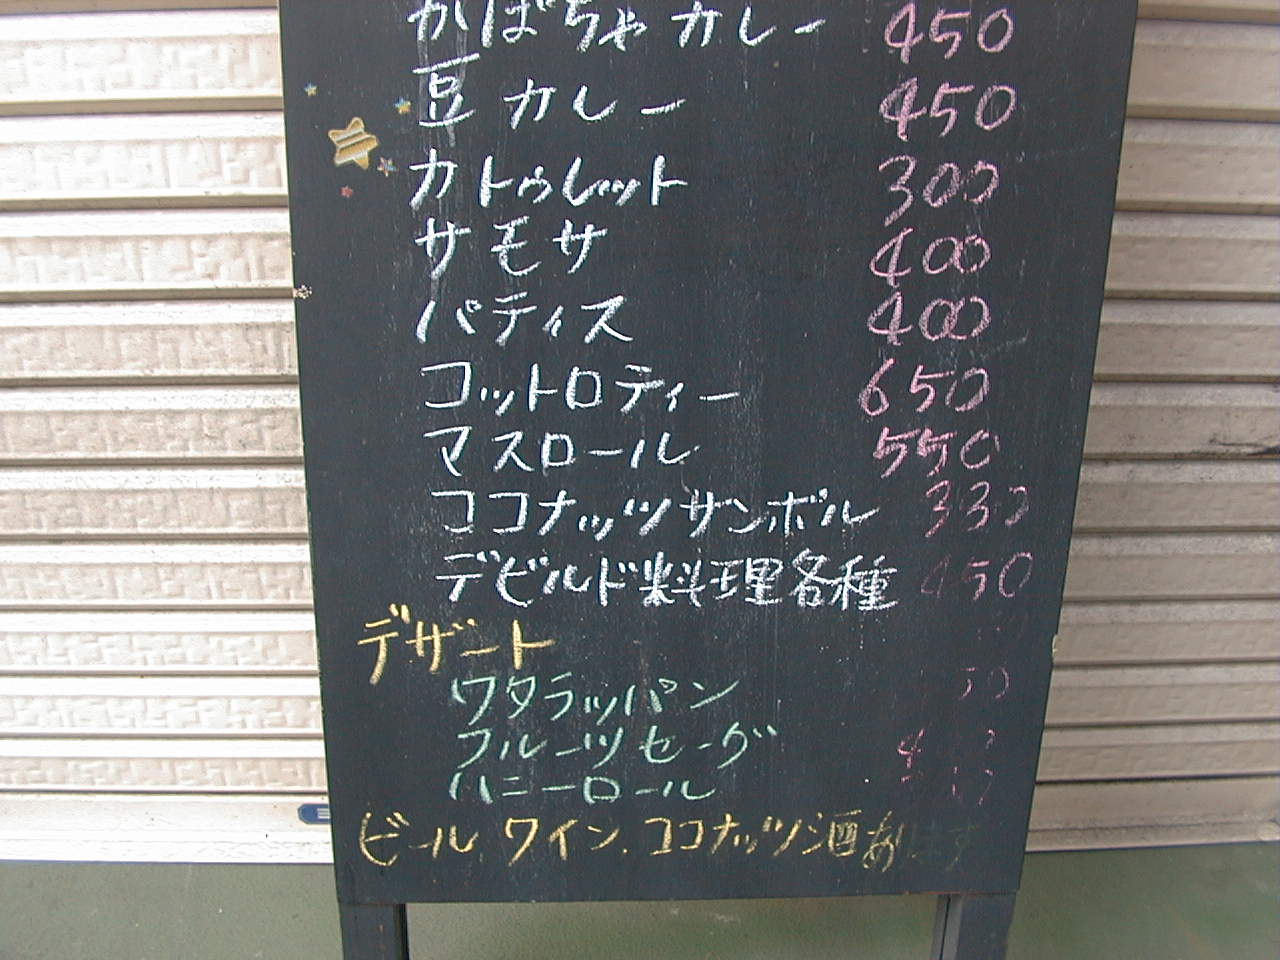 かぼちゃカレー 450
豆カレー 450
カトゥレット 300
サモサ 400
パティス 400
コットロティー 650
マスロール 550
ココナッツサンボル 330
デビルド料理各種 450
デザート
ワタラッパン 50
フルーツセーグ 4
ハニーロール
ビール、ワイン、ココナッツ酒あります